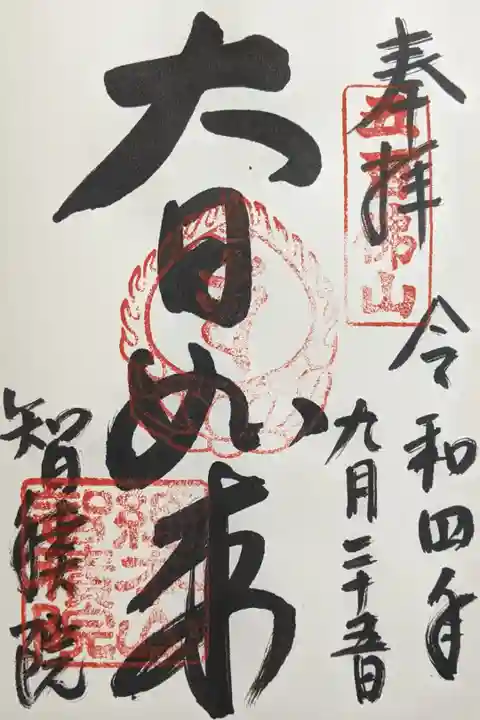 奉拝
五百佛山
令和四年
九月二十五日
大日如来
智積院